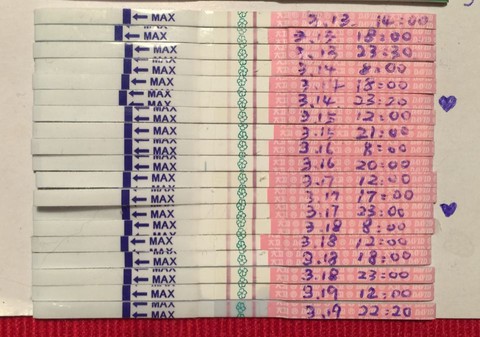 ← MAX 3.13. 14:00
← MAX 3.13 18:00
← MAX 3.13 23:30
← MAX 3.14 8:00
← MAX 3.14 18:00
← MAX 3.14. 23:20
← MAX 3.15 12:00
← MAX 3.15 21:00
← MAX 3.16 8:00
← MAX 3.16 20:00
← MAX 3.17 12:00
← MAX 3.17 17:00
← MAX 3.17 23:00
← MAX 3.18 8:00
← MAX 3.18 12:00
← MAX 3.18 18:00
← MAX 3.18 23:00
← MAX 3.19 12:00
← MAX 3.19 22:20